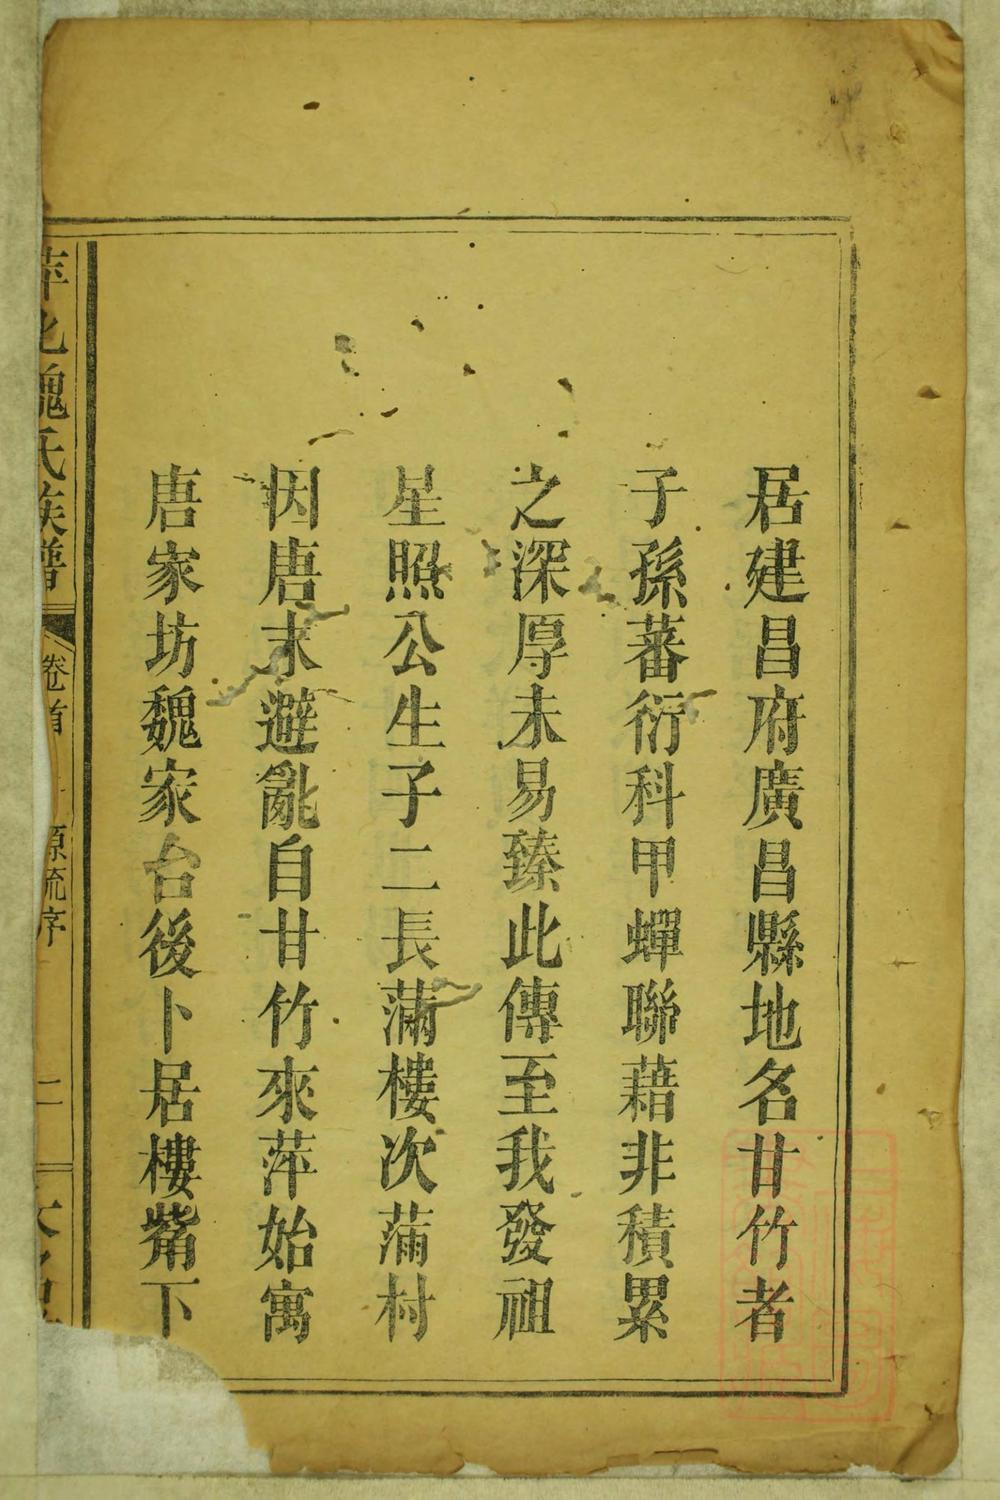 居建昌府廣昌縣地名甘竹者
子孫蕃衍科甲蟬聯藉非積累
之深厚未易臻此傳至我發祖
星照公生子二長蒲樓次蒲村
因唐末避亂自甘竹來萍始寓
唐家坊魏家台後卜居樓觜下
魏氏族譜
卷首
源流序
二